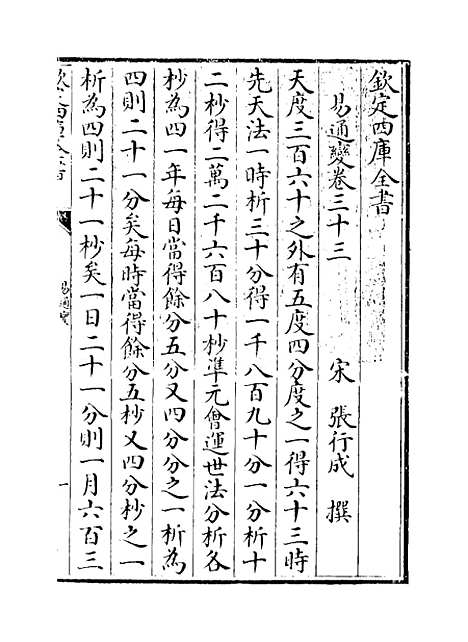 欽定四庫全書
易通變卷三十三
宋 張行成 撰
天度三百六十之外有五度四分度之一得六十三時
先天法一時析三十分得一千八百九十分一分析十
二杪得二萬二千六百八十杪準元會運世法分析各
杪為四一年每日當得餘分五分又四分分之一析為
四則二十一分矣每時當得餘分五杪又四分杪之一
析為四則二十一杪矣一日二十一分則一月六百三
易通變
一